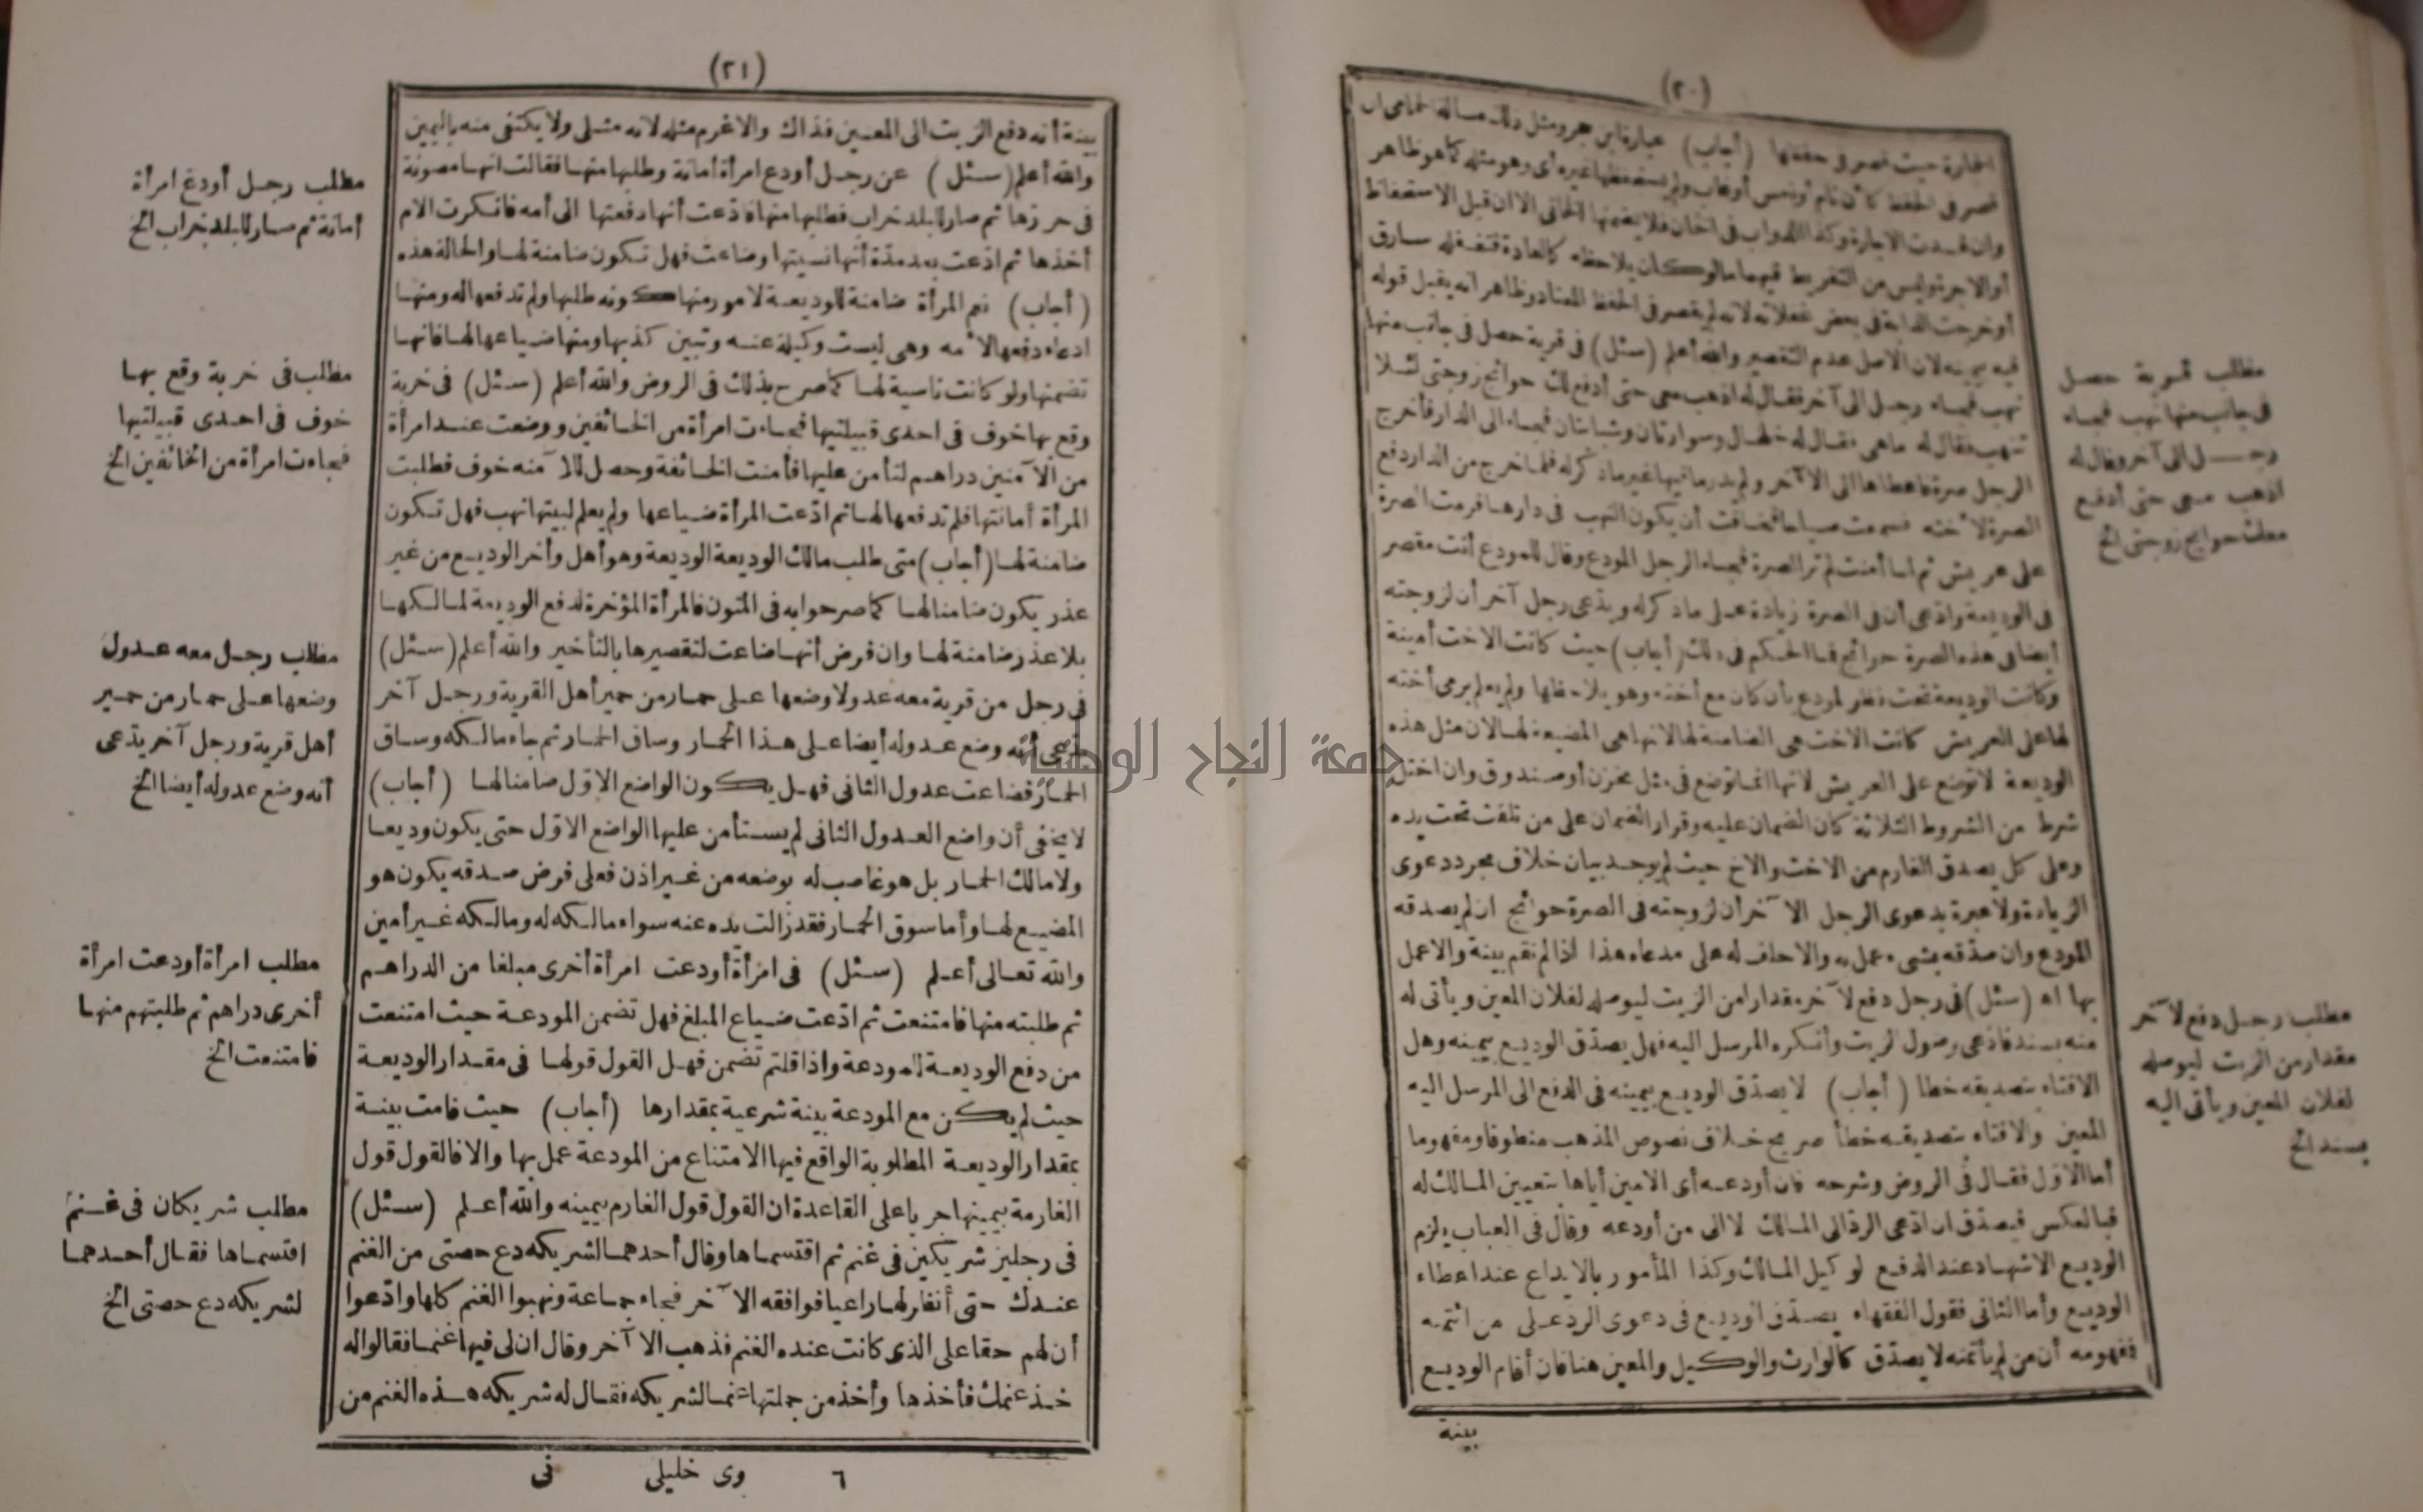 (٢٠)
قصر فى الحفظ كأن نام أو نعس أو غاب ولم يستحفظها غيره أى وهو مثله كما هو ظاهر
وان فسدت الاجارة وكذا الدواب فى الخان فلا يضمنها الخانى الا ان قبل الاستحفاظ
أو الاجرة وليس من التفريط فيهما ما لو كان يلاحظه كالعادة فتغفله سارق
أو خرجت الدابة فى بعض غفلاته لانه لم يقصر فى الحفظ المعتاد وظاهر انه يقبل قوله
فيه بيمينه لان الاصل عدم التقصير والله أعلم (سئل) فى قرية حصل فى جانب منها
نهب فجاء رجل الى آخر فقال له اذهب معى حتى أدفع لك حوائج زوجتى لئلا
تنهب فقال له ما هى فقال له خلخال وسوارتان وشباشان فجاء الى الدار فأخرج
الرجل صرة فأعطاها الى الآخر ولم يدر ما فيها غير ما ذكر له فلما خرج من الدار دفع
الصرة لأخته فسمعت صياحا فخافت أن يكون النهب فى دارها فرمت الصرة
على عريش ثم لما أمنت لم تر الصرة فجاء الرجل المودع وقال للمودع أنت مقصر
فى الوديعة وادّعى أن فى الصرة زيادة على ما ذكر له ويدّعى رجل آخر أن لزوجته
أيضا فى هذه الصرة حوائج فما الحكم فى ذلك (أجاب) حيث كانت الاخت أمينة
وكانت الوديعة تحت نظر المودع بأن كان مع أخته وهو يلاحظها ولم يعلم برمى أخته
لها على العريش كانت الاخت هى الضامنة لها لانها هى المضيعة لها لان مثل هذه
الوديعة لا توضع على العريش لانها انما توضع فى مثل مخزن أو صندوق وان اختل
شرط من الشروط الثلاثة كان الضمان عليه وقرار الضمان على من تلفت تحت يده
وعلى كل يصدق الغارم من الاخت والاخ حيث لم يوجد بيان خلاف مجرد دعوى
الزيادة ولا عبرة بدعوى الرجل الآخر أن لزوجته فى الصرة حوائج ان لم يصدقه
المودع وان صدّقه بشىء عمل به والا حلف له على مدعاه هذا اذا لم تقم بينة والا عمل
بها اه (سئل) فى رجل دفع لآخر مقدارا من الزيت ليوصله لفلان المعين ويأتى له
منه بسند فادّعى وصول الزيت وأنكره المرسل اليه فهل يصدّق الوديع بيمينه وهل
الافتاء بتصديقه خطا (أجاب) لا يصدّق الوديع بيمينه فى الدفع الى المرسل اليه
المعين والافتاء بتصديقه خطأ صريح خلاف نصوص المذهب منطوقا ومفهوما
أما الاوّل فقال فى الروض وشرحه فان أودعه أى الامين أياها بتعيين المالك له
فبالعكس فيصدّق ان ادّعى الردّ الى المالك لا الى من أودعه وقال فى العباب يلزم
الوديع الاشهاد عند الدفع لوكيل المالك وكذا المأمور بالايداع عند اعطاء
الوديع وأما الثانى فقول الفقهاء يصدّق الوديع فى دعوى الردّ على من ائتمنه
فمفهومه أن من لم يأتمنه لا يصدّق كالوارث والوكيل والمعين هنا فان أقام الوديع
بينة
مطلب قرية حصل
فى جانب منها نهب فجاء
رجل الى آخر وقال له
اذهب معى حتى أدفع
معك حوائج زوجتى الخ
مطلب رجل دفع لآخر
مقدار من الزيت ليوصله
لفلان المعين ويأتى اليه
بسند الخ
(٢١)
بينة أنه دفع الزيت الى المعين فذاك والا غرم مثله لانه مثلى ولا يكتفى منه باليمين
والله أعلم (سئل) عن رجل أودع امرأة أمانة وطلبها منها فقالت انها مصونة
فى حرزها ثم صار للبلد خراب فطلبها منها فادّعت أنها دفعتها الى أمه فانكرت الام
أخذها ثم ادّعت بعد مدّة أنها نسيتها وضاعت فهل تكون ضامنة لها والحالة هذه
(أجاب) نعم المرأة ضامنة للوديعة لامور منها كونه طلبها ولم تدفعها له ومنها
ادعاء دفعها لأمه وهى ليست وكيلة عنه وتبين كذبها ومنها ضياعها لها فانها
تضمنها ولو كانت ناسية لها كما صرح بذلك فى الروض والله أعلم (سئل) فى خربة
وقع بها خوف فى احدى قبيلتيها فجاءت امرأة من الخائفين ووضعت عند امرأة
من الآمنين دراهم لتأمن عليها فأمنت الخائفة وحصل للآمنه خوف فطلبت
المرأة أمانتها فلم تدفعها لها ثم ادّعت المرأة ضياعها ولم يعلم لبيتها نهب فهل تكون
ضامنة لها (أجاب) متى طلب مالك الوديعة الوديعة وهو أهل وأخر الوديع من غير
عذر يكون ضامنا لها كما صرحوا به فى المتون فالمرأة المؤخرة لدفع الوديعة لمالكها
بلا عذر ضامنة لها وان فرض أنها ضاعت لتقصيرها بالتأخير والله أعلم (سئل)
فى رجل من قرية معه عدولا وضعها على حمار من حمير أهل القرية ورجل آخر
يدّعى أنه وضع عدوله أيضا على هذا الحمار وساق الحمار ثم جاء مالكه وساق
الحمار فضاعت عدول الثانى فهل يكون الواضع الاوّل ضامنا لها (أجاب)
لا يخفى أن واضع العدول الثانى لم يستأمن عليها الواضع الاوّل حتى يكون وديعا
ولا مالك الحمار بل هو غاصب له بوضعه من غير اذن فعلى فرض صدقه يكون هو
المضيع لها وأما سوق الحمار فقد زالت يده عنه سواء مالكه له ومالكه غير أمين
والله تعالى أعلم (سئل) فى امرأة أودعت امرأة أخرى مبلغا من الدراهم
ثم طلبته منها فامتنعت ثم ادّعت ضياع المبلغ فهل تضمن المودعة حيث امتنعت
من دفع الوديعة للمودعة واذا قلتم تضمن فهل القول قولها فى مقدار الوديعة
حيث لم يكن مع المودعة بينة شرعية بمقدارها (أجاب) حيث قامت بينة
بمقدار الوديعة المطلوبة الواقع فيها الامتناع من المودعة عمل بها والا فالقول قول
الغارمة بيمينها جريا على القاعدة ان القول قول الغارم بيمينه والله أعلم (سئل)
فى رجلين شريكين فى غنم ثم اقتسماها وقال أحدهما لشريكه دع حصتى من الغنم
عندك حتى أنظر لها راعيا فوافقه الآخر فجاء جماعة ونهبوا الغنم كلها وادّعوا
أن لهم حقا على الذى كانت عنده الغنم فذهب الآخر وقال ان لى فيها غنما فقالوا له
خذ غنمك فأخذها وأخذ من جملتها غنما لشريكه فقال له شريكه هذه الغنم من
٦ وى خليلى فى
مطلب رجل أودع امرأة
أمانة ثم صار للبلد خراب الخ
مطلب فى خربة وقع بها
خوف فى احدى قبيلتيها
فجاءت امرأة من الخائفين الخ
مطلب رجل معه عدول
وضعها على حمار من حمير
أهل قرية ورجل آخر يدّعى
أنه وضع عدوله أيضا الخ
مطلب امرأة أودعت امرأة
أخرى دراهم ثم طلبتهم منها
فامتنعت الخ
مطلب شريكان فى غنم
اقتسماها فقال أحدهما
لشريكه دع حصتى الخ
جامعة النجاح الوطنية